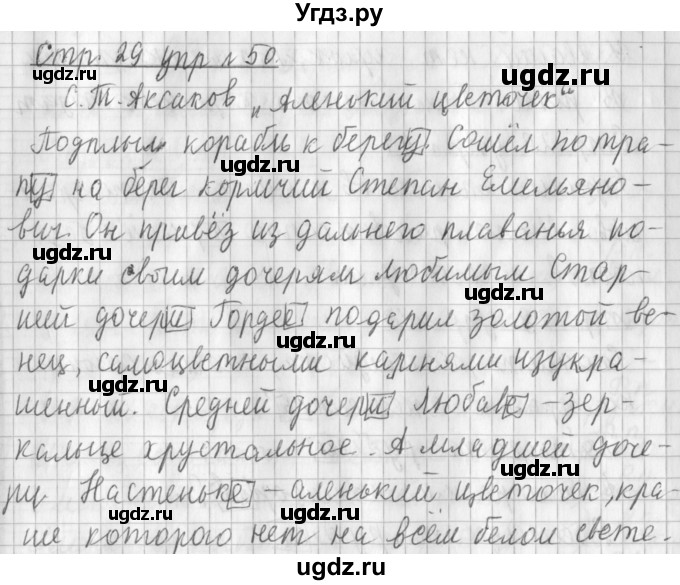 Угдз.ру
Стр. 29 упр № 50.
С.Т. Аксаков „Аленький цветочек“
Подплыл корабль к берегу. Сошёл по тра-
пу на берег кормчий Степан Емельяно-
вич. Он привёз из дальнего плаванья по-
дарки своим дочерям любимым Стар-
шей дочери Гордее подарил золотой ве-
нец, самоцветными камнями изукра-
шенный. Средней дочери Любаве - зер-
кальце хрустальное. А младшей доче-
ри Настеньке - аленький цветочек, кра-
ше которого нет на всём белом свете.
ugdz.ru
ugdz.ru
ugdz.ru
ugdz.ru
ugdz.ru
ugdz.ru
ugdz.ru
ugdz.ru
ugdz.ru
ugdz.ru
ugdz.ru
ugdz.ru
ugdz.ru
ugdz.ru
Угдз.ру